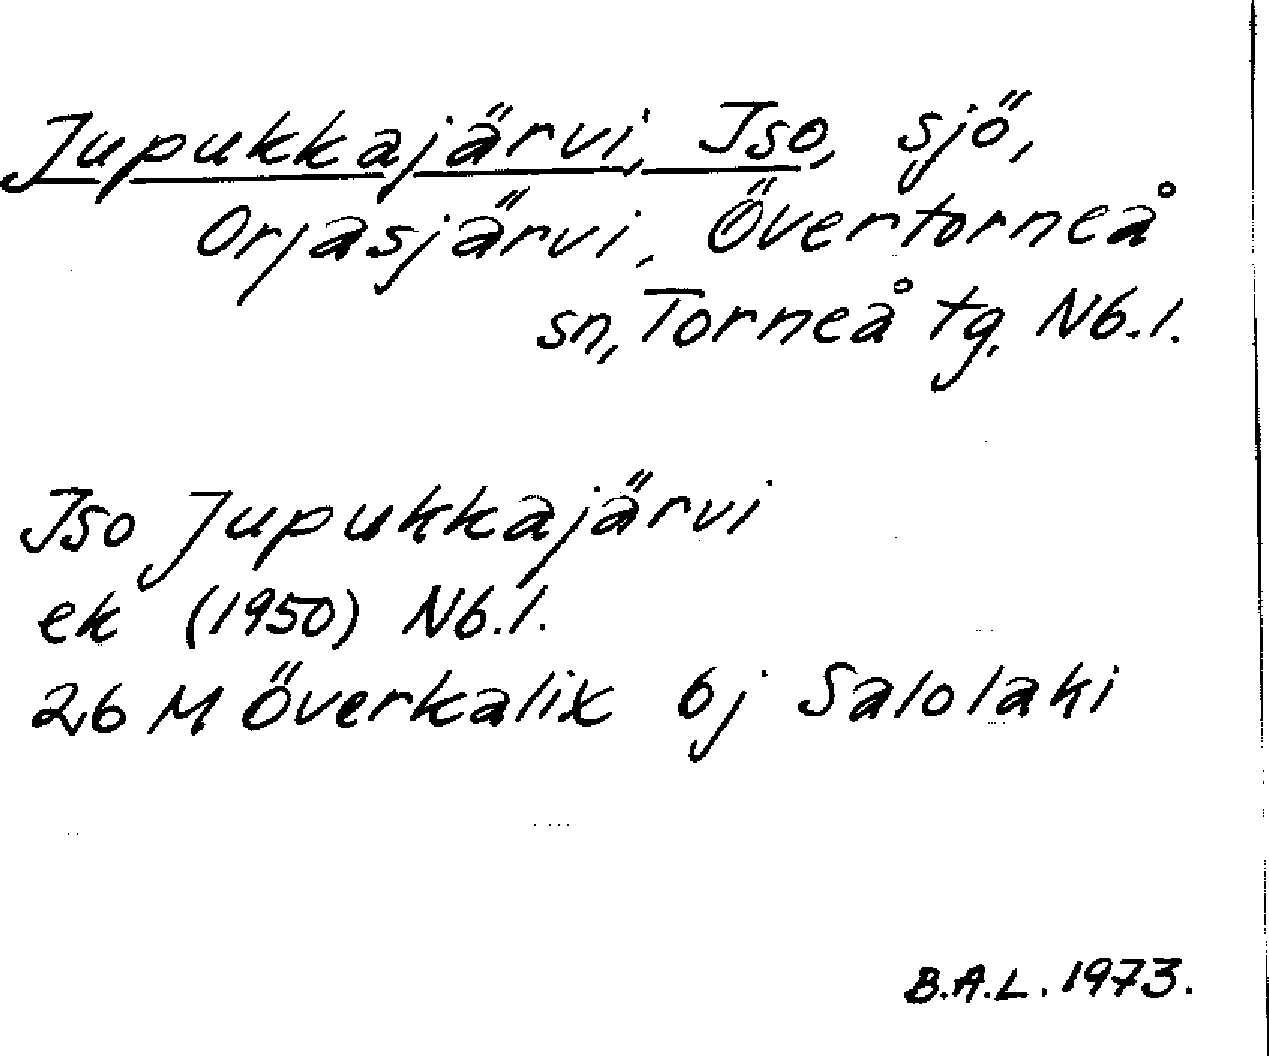 Jupukkajärvi, Iso, sjö,
Orjasjärvi, Övertorneå
sn, Torneå tg, Nb.l.
Iso Jupukkajärvi
ek (1950) Nb.l.
26 M Överkalix 6j Salolaki
B.A.L. 1973.